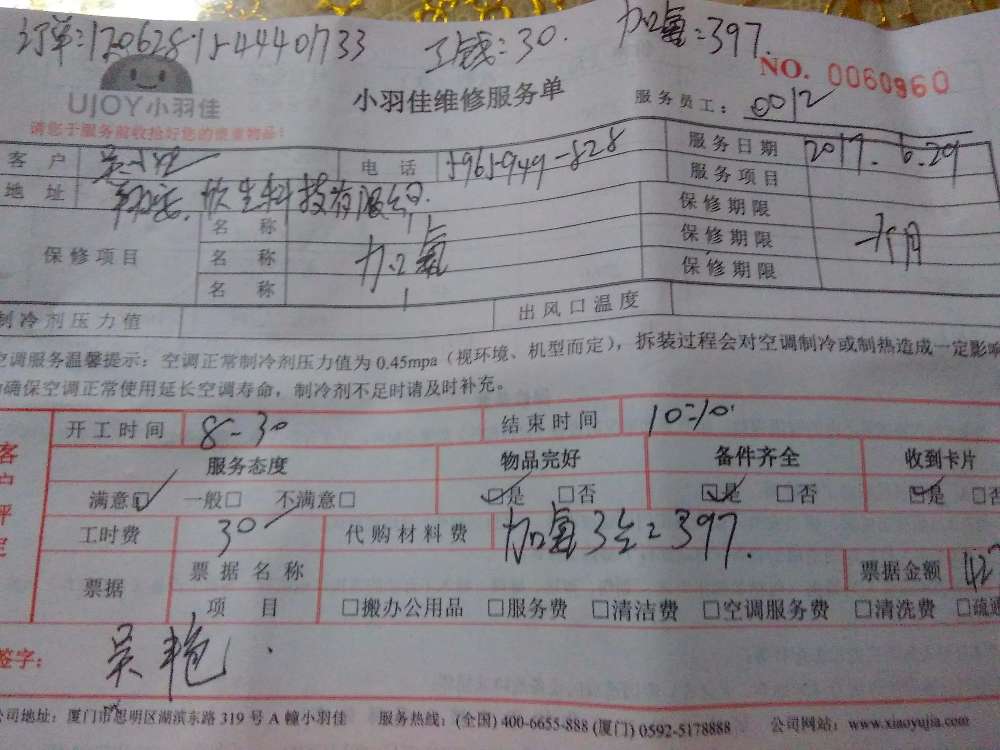 工钱:30. 加氟:397.
NO. 0060960
UJOY小羽佳
小羽佳维修服务单
服务员工: 0012
请您于服务前收拾好您的贵重物品!
客户 电话
服务日期 2017.6.29
地址 科技有限公司.
服务项目
保修项目
名称 保修期限
名称 加氟 保修期限 个月
名称 保修期限
制冷剂压力值 出风口温度
空调服务温馨提示:空调正常制冷剂压力值为 0.45mpa(视环境、机型而定),拆装过程会对空调制冷或制热造成一定影响
确保空调正常使用延长空调寿命,制冷剂不足时请及时补充。
客户评定
开工时间 8-30 结束时间 10=10.
服务态度 物品完好 备件齐全 收到卡片
满意☑ 一般□ 不满意□ ☑是 □否 ☑是 □否 ☑是 □否
工时费 30 代购材料费 加氟3台=397.
票据 票据名称 票据金额 427
项目 □搬办公用品 □服务费 □清洁费 □空调服务费 □清洗费 □疏通
签字: 吴艳.
公司地址:厦门市思明区湖滨东路 319 号 A 幢小羽佳 服务热线:(全国) 400-6655-888 (厦门) 0592-5178888 公司网站:www.xiaoyujia.com